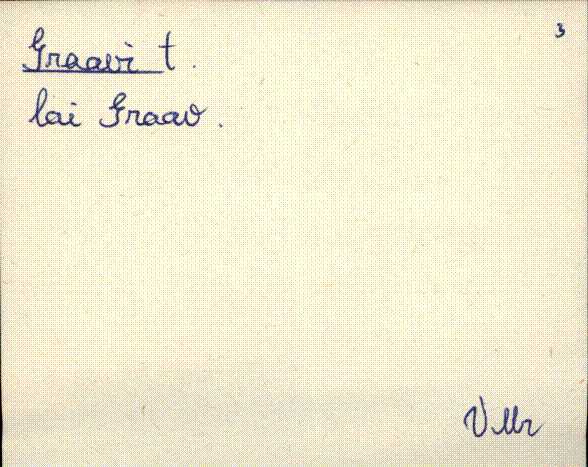 3
Graavi t.
lai Graav.
VMr